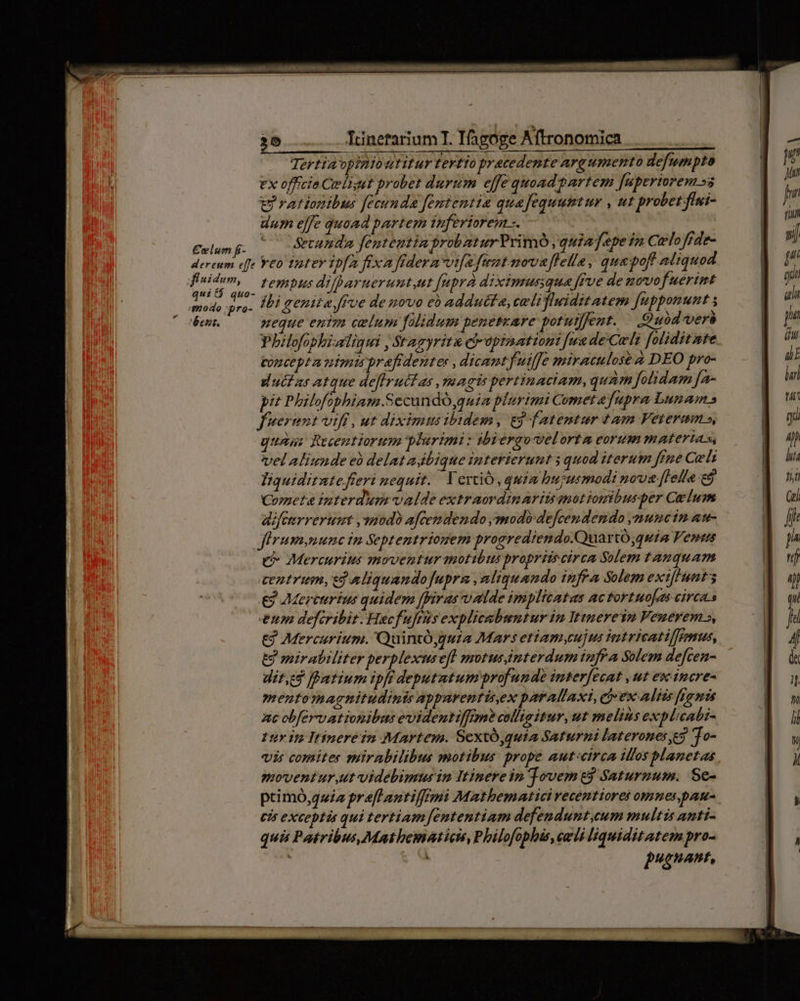 30 Itinerarium I. Isagoge Astronomica
Tertia opinio utitur tertio præcedente argumento desumpto
ex officio Cœli; ut probet durum esse quoad partem superiorem;
& rationibus secundæ sententiæ quæ sequuntur, ut probet flui-
dum esse quoad partem inferiorem.
Cælum si-
dereum esse
fluidum,
qui & quo-
modo pro-
bent.
Secunda sententia probatur Primò, quia sæpe in Cælo side-
reo inter ipsa fixa sidera visæ sunt novæ stellæ, quæ post aliquod
tempus disparuerunt, ut suprà diximus; quæ sive de novo fuerint
ibi genitæ, sive de novo eò adductæ, cæli fluiditatem supponunt;
neque enim cælum solidum penetrare potuissent. Quòd verò
Philosophi aliqui, Stagyritæ & opinationi suæ de Cæli soliditate
conceptæ nimis præsidentes, dicant fuisse miraculosè à DEO pro-
ductas atque destructas, magis pertinaciam, quàm solidam sa-
pit Philosophiam. Secundò, quia plurimi Cometæ supra Lunam
fuerunt visi, ut diximus ibidem, & fatentur tam Veterum,
quàm Recentiorum plurimi: ibi ergo vel orta eorum materia,
vel aliunde eò delata, ibique interierunt; quod iterum sine Cæli
liquiditate fieri nequit. Tertiò, quia hujusmodi novæ stellæ &
Cometæ interdum valde extraordinariis motionibus per Cælum
discurrerunt, modò ascendendo, modò descendendo, nunc in au-
strum, nunc in Septentrionem progrediendo. Quartò, quia Venus
& Mercurius moventur motibus propriis circa Solem tanquam
centrum, & aliquando supra, aliquando infra Solem existunt;
& Mercurius quidem spiras valde implicatas ac tortuosas circa
eum describit. Hæc fusiùs explicabuntur in Itinere in Venerem,
& Mercurium. Quintò, quia Mars etiam, cujus intricatissimus,
& mirabiliter perplexus est motus, interdum infra Solem descen-
dit, & spatium ipsi deputatum profundè intersecat, ut ex incre-
mento magnitudinis apparentis, ex parallaxi, & ex aliis signis
ac observationibus evidentissimè colligitur, ut meliùs explicabi-
tur in Itinere in Martem. Sextò, quia Saturni laterones, & Jo-
vis comites mirabilibus motibus prope aut circa illos planetas
moventur, ut videbimus in Itinere in Jovem & Saturnum. Se-
ptimò, quia præstantissimi Mathematici recentiores omnes, pau-
cis exceptis qui tertiam sententiam defendunt, cum multis anti-
quis Patribus, Mathematicis, Philosophis, cæli liquiditatem pro-
pugnant,